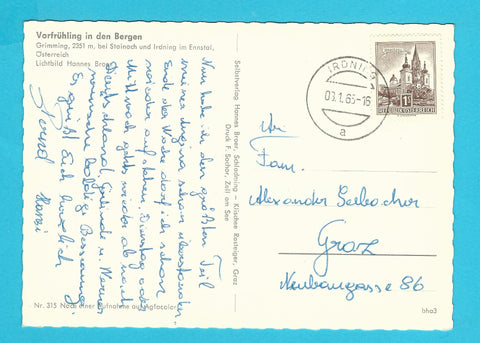 Vorfrühling in den Bergen
Grimming, 2351 m, bei Stainach und Irdning im Ennstal,
Österreich
Lichtbild Hannes Broer
Nun habe ich den größten Teil
meiner schon überstanden
Ende der Woche darf ich schon
wieder aufstehen. Dienstag oder
Mittwoch geht's wieder ab nach
Deutschland. Gerlinde u. Werner
wünsche baldige Besserung.
Es grüßt Euch herzlich
Hansi
Nr. 315 Nach einer Aufnahme auf Agfacolor
Selbstverlag Hannes Broer, Schladming – Klischee Rasteiger, Graz
Druck F. Gacher, Zell am See
IRDNING
a
1 S
REPUBLIK ÖSTERREICH
An
Fam.
Alexander Seebacher
Graz
Neubaugasse 86
bha3